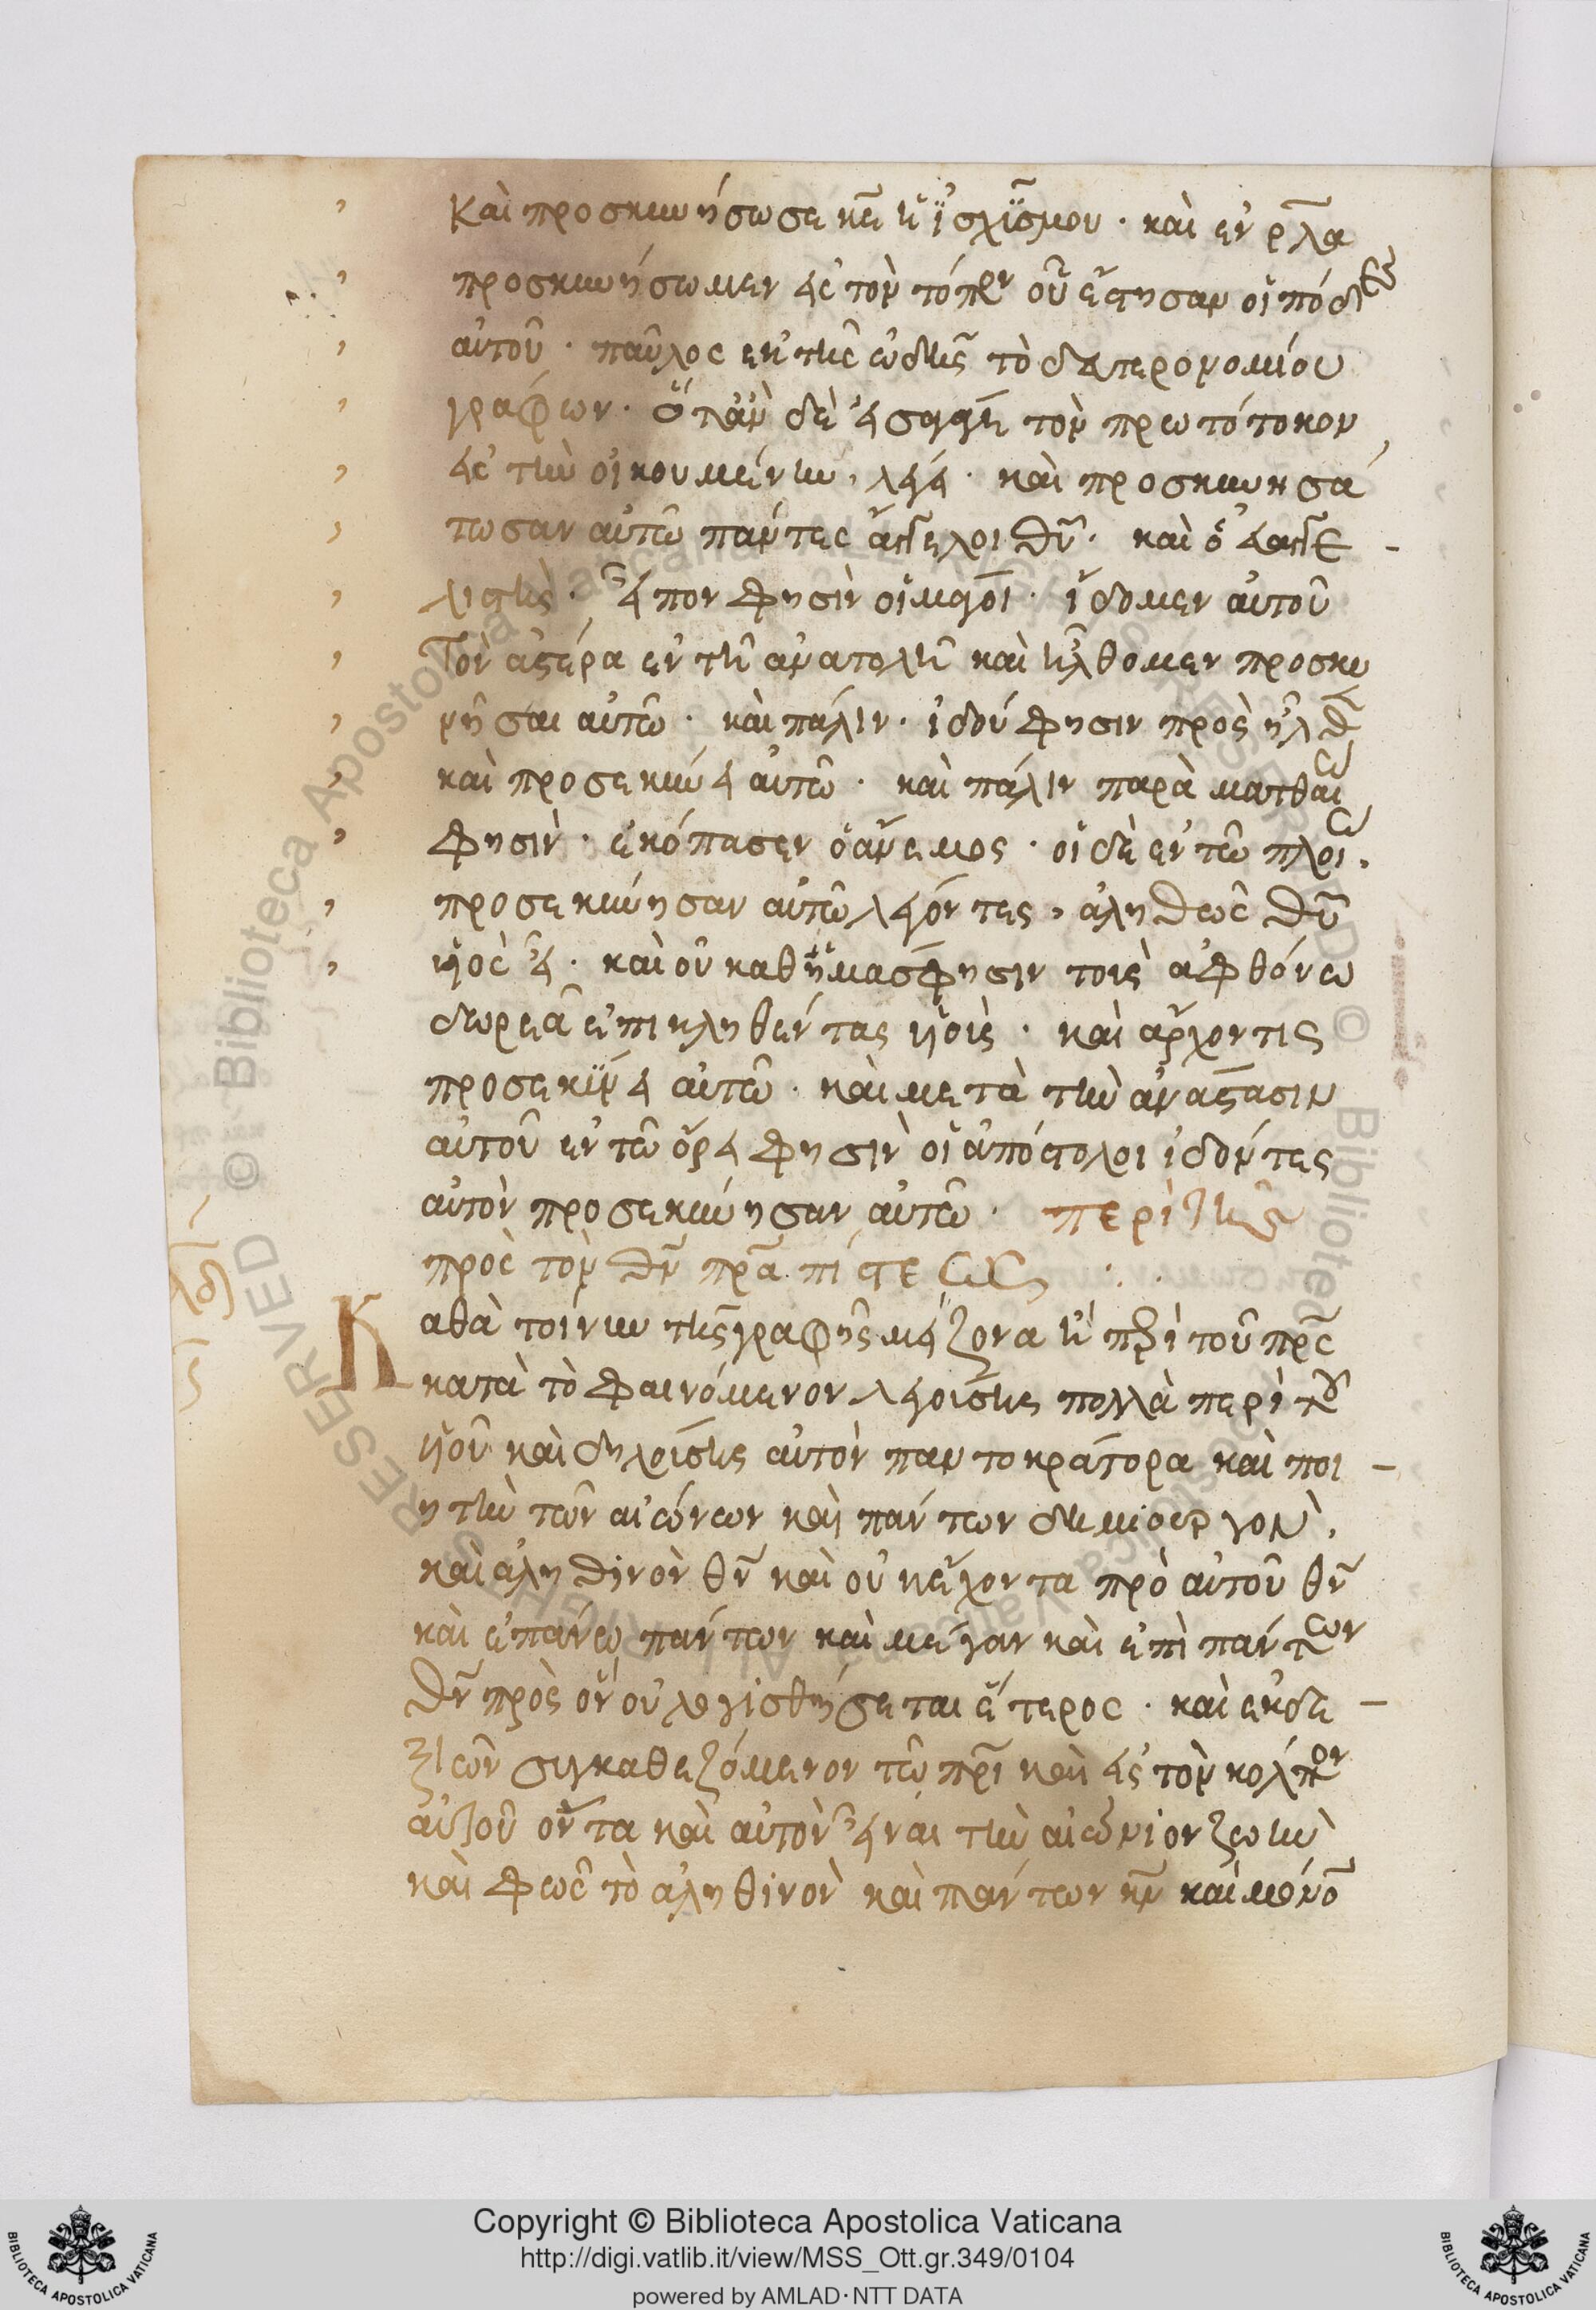 καὶ προσκυνήσω σε κε ἡ ἰσχύσμου · καὶ ἐν ρλα
προσκυνήσωμεν εἰς τὸν τόπον οὗ ἔστησαν οἱ πόδες
αὐτοῦ · παῦλος ἐκ τῆς ὠδῆς τὸ δευτερονομίου
γράφων · ὅταν δὲ εἰσαγάγη τὸν πρωτότοκον
εἰς τὴν οἰκουμένην, λέγει · καὶ προσκυνησά
τωσαν αὐτῶ πάντες ἄγγελοι θυ · καὶ ὁ εὐαγγε -
λιστὴς · εἶπον φησὶν οἱ μάγοι · ἴδομεν αὐτοῦ
τὸν ἀστέρα ἐν τῆ ἀνατολῆ καὶ ἤλθομεν προσκυ
νῆσαι αὐτῶ · καὶ πάλιν · ἰδού φησιν προσῆλθεν
καὶ προσεκύνει αὐτῶ · καὶ πάλιν παρὰ ματθαίω
φησὶν · ἐκόπασεν ὁ ἄνεμος · οἱ δὲ ἐν τῶ πλοίω
προσεκύνησαν αὐτῶ λέγοντες, ἀληθῶς θυ
υἱὸς εἶ · καὶ οὐ καθ ἡμᾶς φησιν τοὺς ἀφθόνω
δωρεᾶ ἐπικληθέντας υἱοὺς · καὶ ἄρχοντις
προσεκύνει αὐτῶ · καὶ μετὰ τὴν ἀνάστασιν
αὐτοῦ ἐν τῶ ὄρει φησὶν οἱ ἀπόστολοι ἰδόντες
αὐτὸν προσεκύνησαν αὐτῶ · περὶ τῆς
πρὸς τὸν θν πρα πίστεως
Καθὰ τοίνυν τῆς γραφῆς μείζονα ἢ περὶ τοῦ πρς
κατὰ τὸ φαινόμενον λεγούσης πολλὰ περὶ τοῦ
υἱοῦ καὶ δηλούσης αὐτὸν παντοκράτορα καὶ ποι -
ητὴν τῶν αἰώνων καὶ πάντων δημιουργὸν,
καὶ ἀληθινὸν θν καὶ οὐκ ἔχοντα πρὸ αὐτοῦ θν
καὶ ἐπάνω πάντων καὶ μέγαν καὶ ἐπὶ πάντων
θν πρὸς ὃν οὐ λογισθήσεται ἕτερος · καὶ ἐκ δε -
ξιῶν συγκαθεζόμενον τῶ πρι καὶ εἰς τὸν κόλπον
αὐτοῦ ὄντα καὶ αὐτὸν εἶναι τὴν αἰώνιον ζωὴν
καὶ φῶς τὸ ἀληθινὸν καὶ πάντων κν καὶ μόνο
Copyright © Biblioteca Apostolica Vaticana
http://digi.vatlib.it/view/MSS_Ott.gr.349/0104
powered by AMLAD·NTT DATA